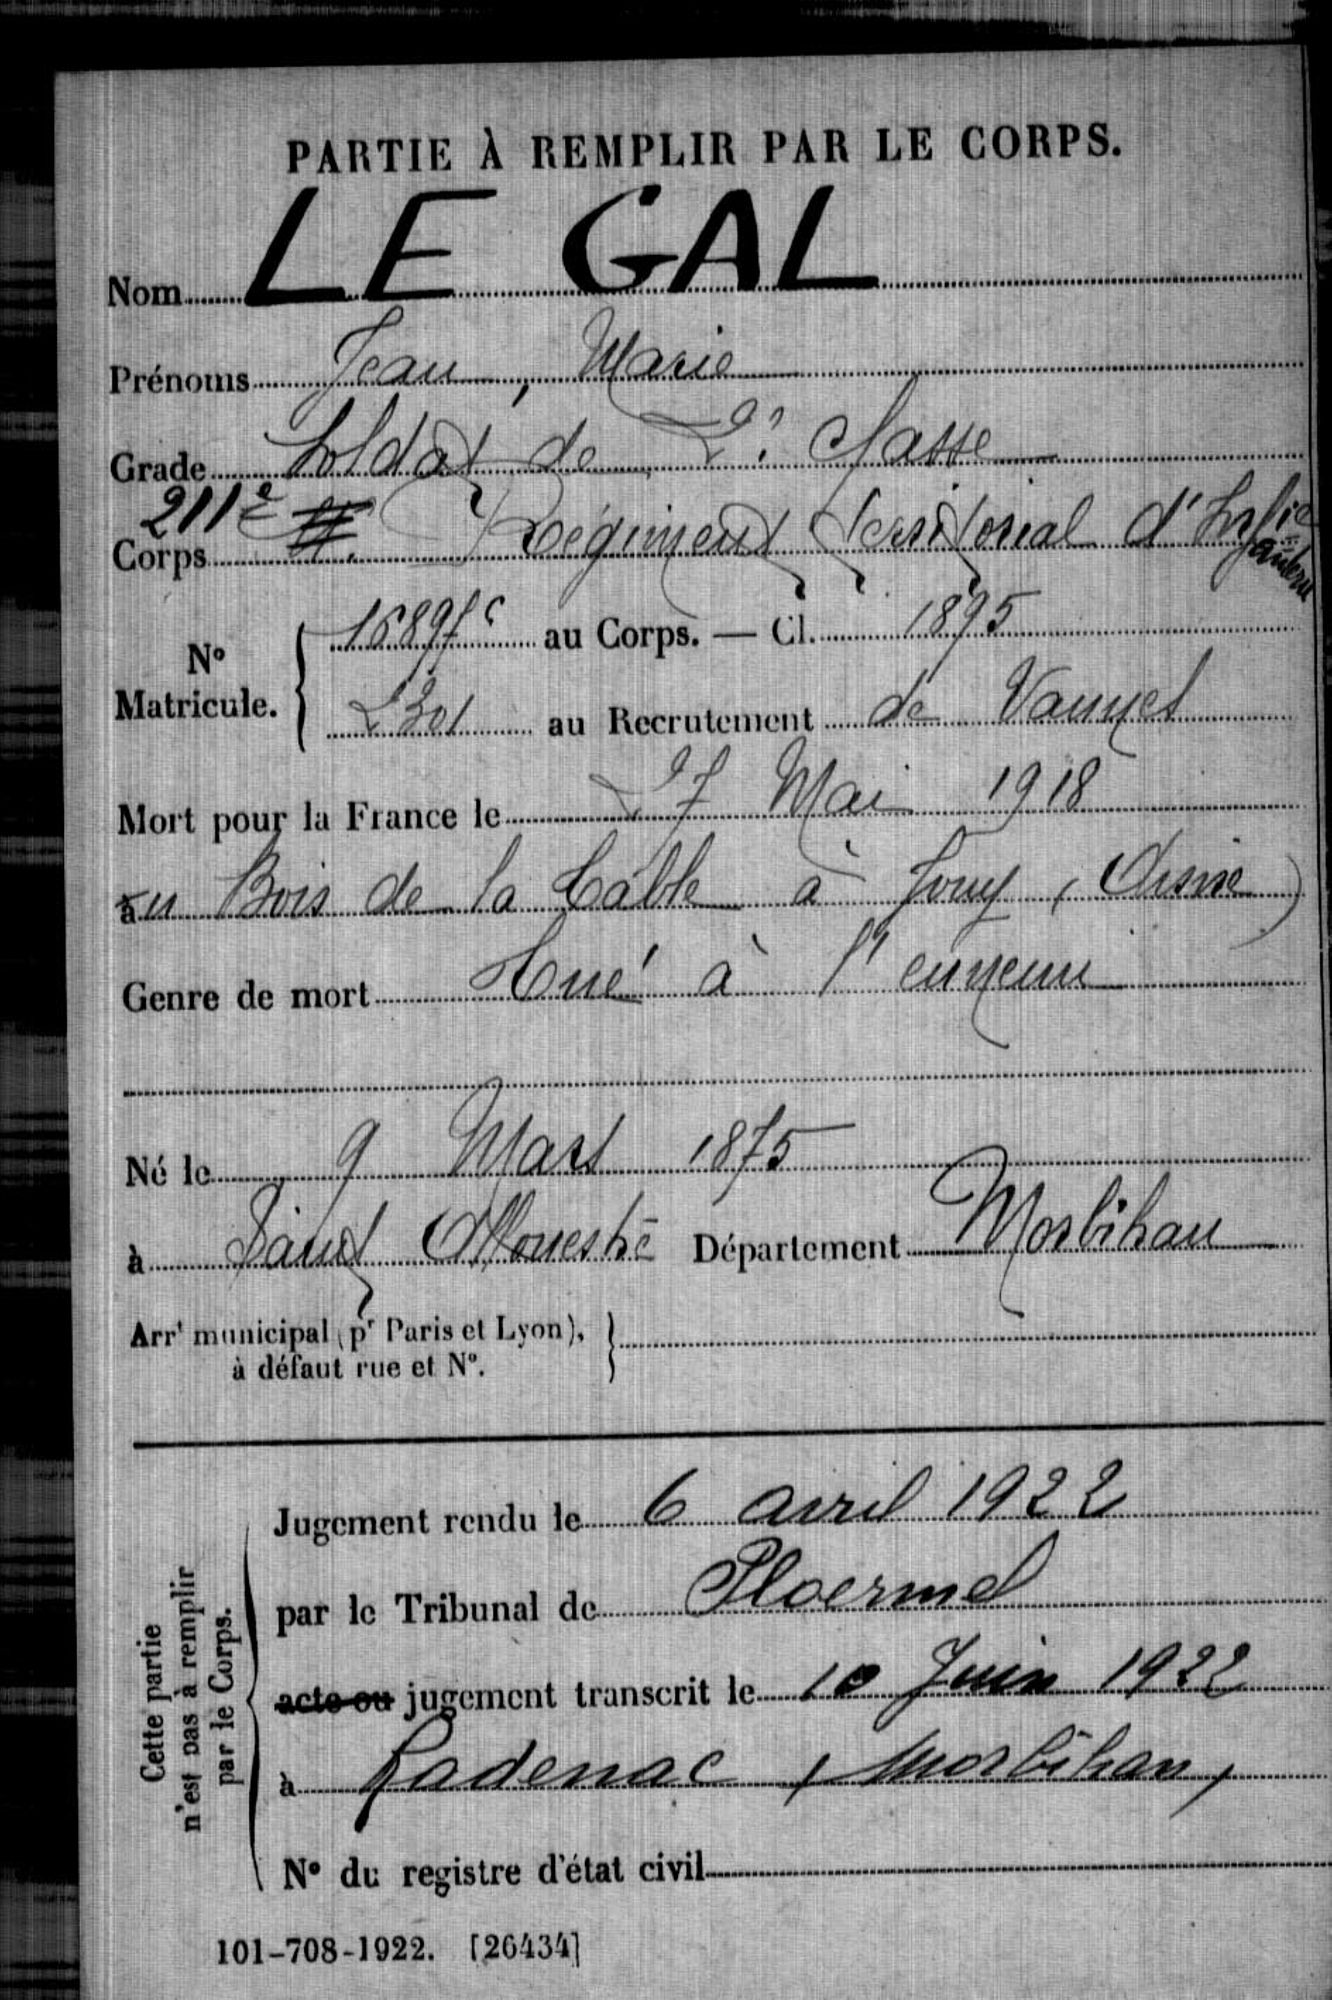 PARTIE À REMPLIR PAR LE CORPS.
Nom LE GAL
Prénoms Jean, Marie
Grade Soldat de 2e Classe
Corps 211e Régiment Territorial d'Infie
N° Matricule. 16897c au Corps. — Cl. 1895
2301 au Recrutement de Vannes
Mort pour la France le 27 Mai 1918
au Bois de la Cable à Jouy (Aisne)
Genre de mort Tué à l'ennemi
Né le 9 Mars 1875
à Saint Allouestre Département Morbihan
Arrt municipal (pr Paris et Lyon),
à défaut rue et N°.
Cette partie
n'est pas à remplir
par le Corps.
Jugement rendu le 6 avril 1922
par le Tribunal de Ploermel
acte ou jugement transcrit le 10 Juin 1922
à Radenac, Morbihan,
N° du registre d'état civil
101-708-1922. [26434]